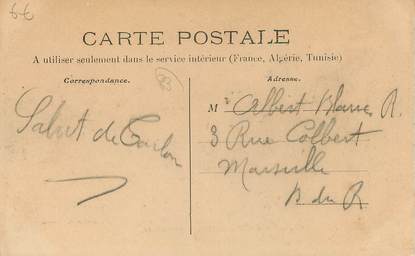 66
CARTE POSTALE
A utiliser seulement dans le service intérieur (France, Algérie, Tunisie)
Correspondance.
Adresse.
Salut de
M Albert R.
3 Rue Colbert
Marseille
B du R